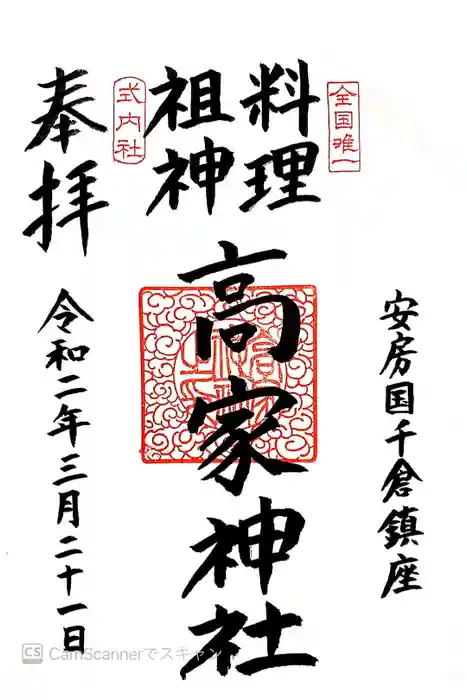 安房国千倉鎮座
全国唯一
料理
祖神
式内社
高家神社
奉拝
令和二年三月二十一日
CS CamScannerでスキャン